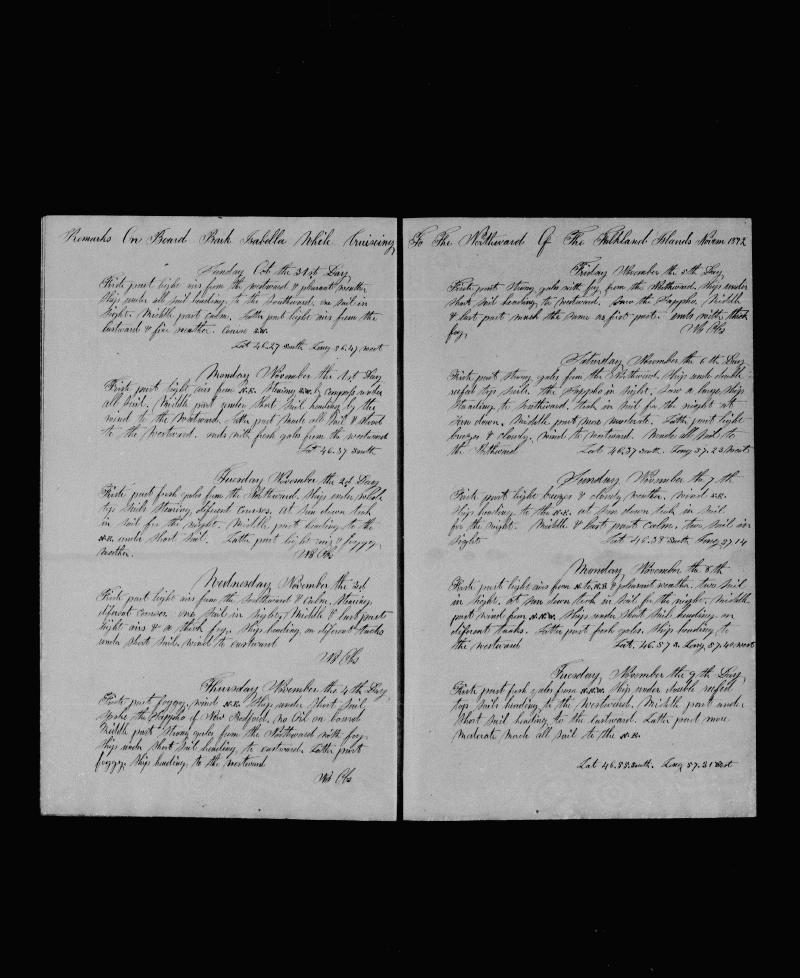 Remarks On Board Bark Isabella While Cruising
Sunday Oct the 31st Day
Firste part light airs from the westward & pleasant weather
Ship under all sail heading to the southward. one sail in
sight. Middle part calm. Latter part light airs from the
eastward & fine weather. Course
Lat 46.27 South Long 56.47 West
Monday November the 1st Day
Firste part light airs from N.E. Stearing by compass under
all sail. Middle part under short sail heading by the
wind to the Westward. Latter part made all sail & stood
to the Westward. ends with fresh gales from the westward
Lat 46.37 South
Tuesday November the 2d Day
Firste part fresh gales from the Southward. Ship under
top sails Stearing diferent courses. at sun down took
in sail for the night. Middle part heading to the
N.E. under short sail. Latter part light airs & foggy
weather. No Obs
Wednesday November the 3d
Firste part light airs from the southward & calm. Stearing
diferent courses one sail in sight. Middle & last parts
light airs & a thick fog. Ship heading on diferent tacks
under short sail. wind to eastward
No Obs
Thursday November the 4th Day
Firste part foggy, wind N.E. Ship under short sail
spoke the Sappho of New Bedford, no Oil on board
Middle part strong gales from the Northward with fog
Ship under short sail heading to eastward. Latter part
foggy. Ship heading to the westward
No Obs
To The Northward Of The Falkland Islands Novem 1872
Friday November the 5th Day
Firste part strong gales with fog from the Northward. Ship under
short sail heading to westward. saw the Sappho. Middle
& last part much the same as first part. ends with thick
fog. No Obs
Saturday November the 6th Day
Firste part strong gales from the Northward Ship under double
reefed top sails. the Sappho in sight. Saw a large ship
standing to southward. took in sail for the night at
sun down. Middle part more moderate. Latter part light
breezes & cloudy. wind to westward. Made all sail to
the Northward Lat 46.37 South. Long 57.25 West
Sunday November the 7th
Firste part light breezes & cloudy weather. wind
Ship heading to the N.E. at sun down took in sail
for the night. Middle & last parts calm. two sail in
sight Lat 46.38 South Long 57.14
Monday November the 8th
Firste part light airs from N. to N.E & pleasant weather. two sail
in sight. at sun down took in sail for the night. Middle
part wind from N.N.W. Ship under short sail heading on
diferent tacks. Latter part fresh gales. Ship heading to
the westward Lat. 46.57 S. Long 57.40 West
Tuesday November the 9th Day
Firste part fresh gales from N.N.W. Ship under double reefed
top sails heading to the Westward. Middle part under
short sail heading to the Eastward. Latter part more
moderate made all sail to the N.E.
Lat 46.58 South. Long 57.31 West